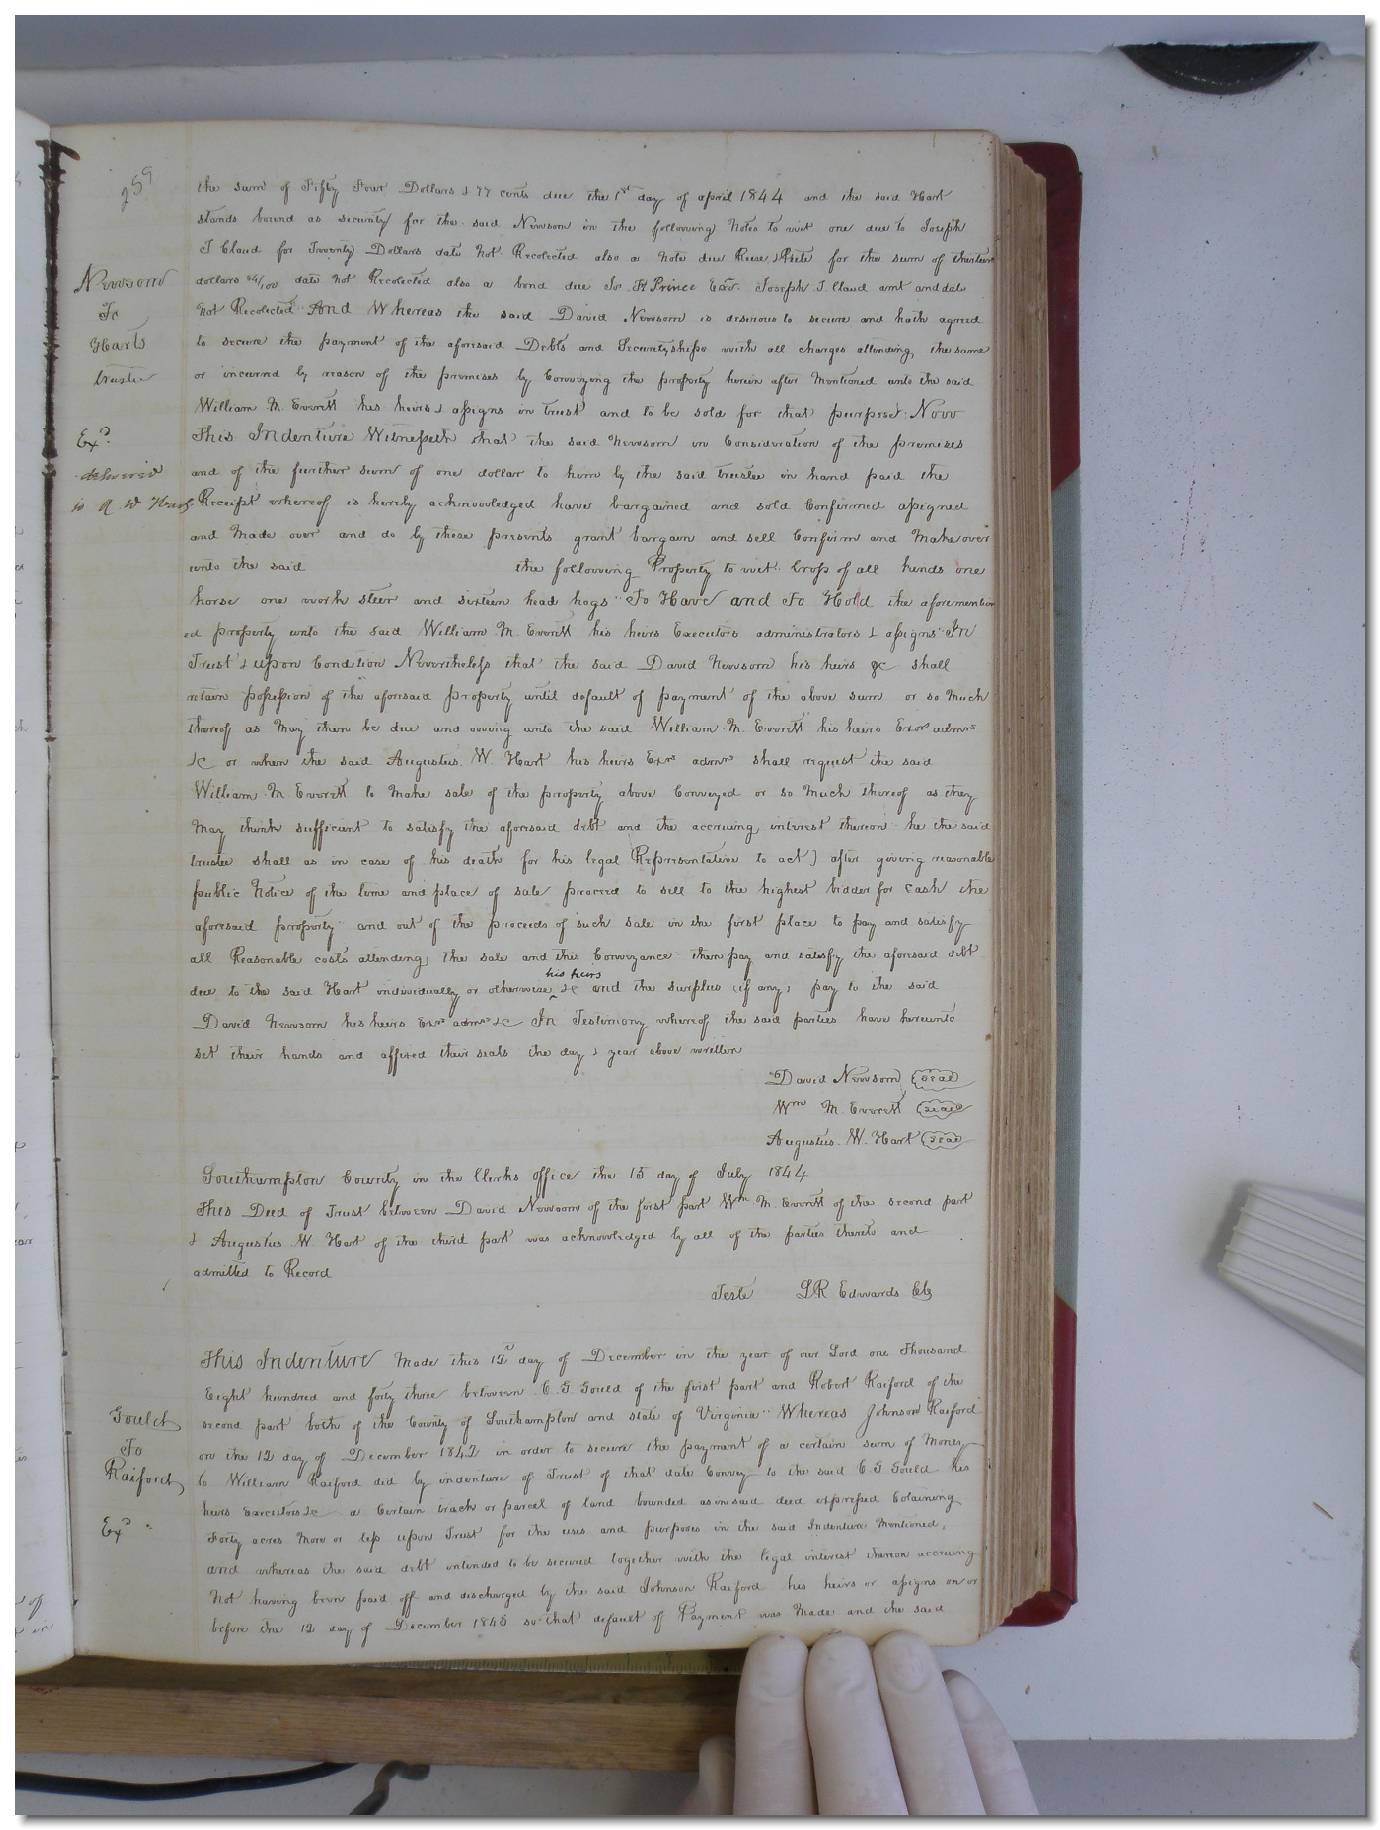 259
the sum of Fifty Four Dollars & 77 cents due the 1st day of april 1844 and the said Hart
stands bound as security for the said Newsom in the following Notes to wit one due to Joseph
T Claud for Twenty Dollars date Not Recolected also a Note due Reese & Pete for the sum of thirteen
dollars /100 date Not Recolected also a bond due Prince Exr. Joseph T. Claud amt and date
Not Recolected And Whereas the said David Newsom is desirous to secure and hath agreed
to secure the payment of the aforesaid Debts and Securityships with all charges attending the same
or incurred by reason of the premises by Conveying the property herein after Mentioned unto the said
William M. Everett his heirs & assigns in trust and to be sold for that purpose. Now
This Indenture Witnesseth that the said Newsom in Consideration of the premises
and of the further sum of one dollar to him by the said trustee in hand paid the
Receipt whereof is hereby acknowledged have bargained and sold Confirmed assigned
and Made over and do by these presents grant bargain and sell Confirm and Make over
unto the said the following Property to wit. Crops of all kinds one
horse one work steer and sixteen head hogs To Have and To Hold the aforemention
ed property unto the said William M. Everett his heirs Executors administrators & assigns In
Trust & upon Condition Nevertheless that the said David Newsom his heirs &c shall
retain possession of the aforesaid property until default of payment of the above sum or so Much
thereof as May then be due and owing unto the said William M. Everett his heirs Exors admrs
&c or when the said Augustus. W. Hart his heirs Exrs admrs shall request the said
William M Everett to Make sale of the property above Conveyed or so Much thereof as they
May think sufficient to satisfy the aforesaid debt and the accruing interest thereon he the said
trustee shall as in case of his death for his legal Representative to act) after giving reasonable
public Notice of the time and place of sale proceed to sell to the highest bidder for cash the
aforesaid property and out of the proceeds of such sale in the first place to pay and satisfy
all Reasonable costs attending the sale and this Conveyance then pay and satisfy the aforesaid debt
due to the said Hart individually or otherwise his heirs &c and the surplus (if any) pay to the said
David Newsom his heirs Exrs admrs &c In Testimony whereof the said parties have hereunto
set their hands and affixed their seals the day & year above written
Newsom
To
Harts
trustee
Exd.
delivered
to A. W Hart
David Newsom Seal
Wm M. Everett Seal
Augustus. W. Hart Seal
Southampton County in the Clerks office the 15 day of July 1844
This Deed of Trust between David Newsom of the first part Wm M. Everett of the second part
& Augustus W. Hart of the third part was acknowledged by all of the parties thereto and
admitted to Record
Teste LR Edwards Clk
This Indenture Made this 12th day of December in the year of our Lord one Thousand
Eight hundred and forty three between C. G Gould of the first part and Robert Raiford of the
second part both of the County of Southampton and state of Virginia Whereas Johnson Raiford
on the 12 day of December 1842 in order to secure the payment of a certain sum of Money
to William Raiford did by indenture of Trust of that date Convey to the said C G Gould his
heirs Executors &c a Certain track or parcel of land bounded as in said deed expressed Cotaining
Forty acres More or less upon Trust for the uses and purposes in the said Indenture Mentioned,
and whereas the said debt intended to be secured together with the legal interest thereon accruing
Not having been paid off and discharged by the said Johnson Raiford his heirs or assigns on or
before the 12 day of December 1843 so that default of Payment was Made and the said
Gould
To
Raiford
Exd